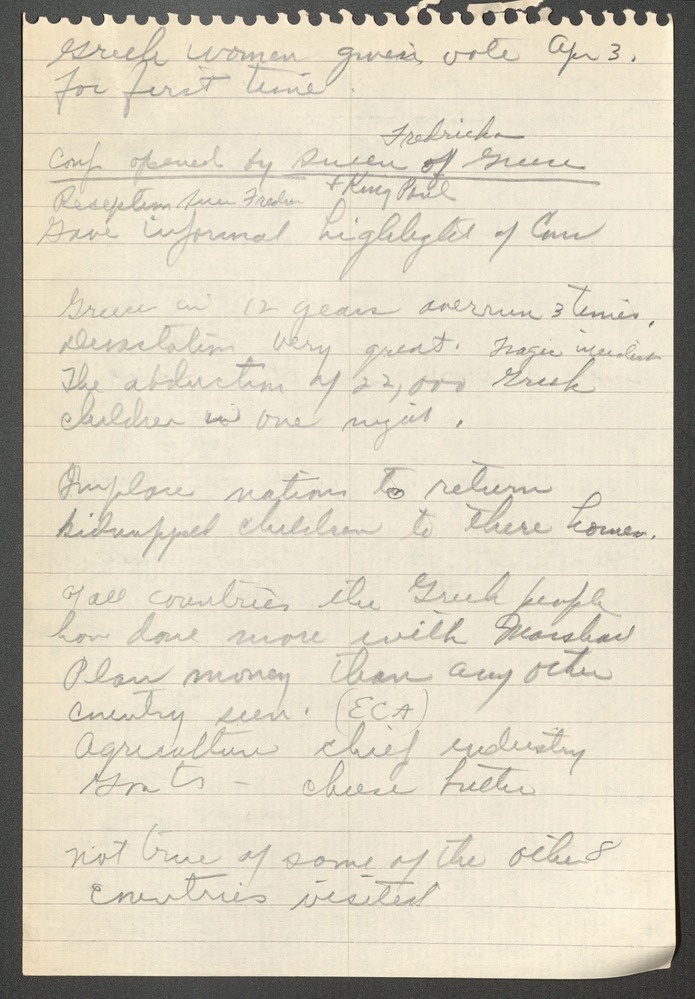 Greek women given vote Apr 3.
for first time.
Fredricka
Conf opened by Queen of Greece
+ King Paul
Reception
Gave informal highlights of Conf
Greece in 12 years overrun 3 times.
devastation very great. Tragic incident
The abduction of 22,000 Greek
children in one night.
Implore nations to return
kidnapped children to there homes.
Of all countries the Greek people
have done more with Marshall
Plan money than any other
country seen. (ECA)
Agriculture chief industry
Goats - cheese butter
not true of some of the other 8
countries visited